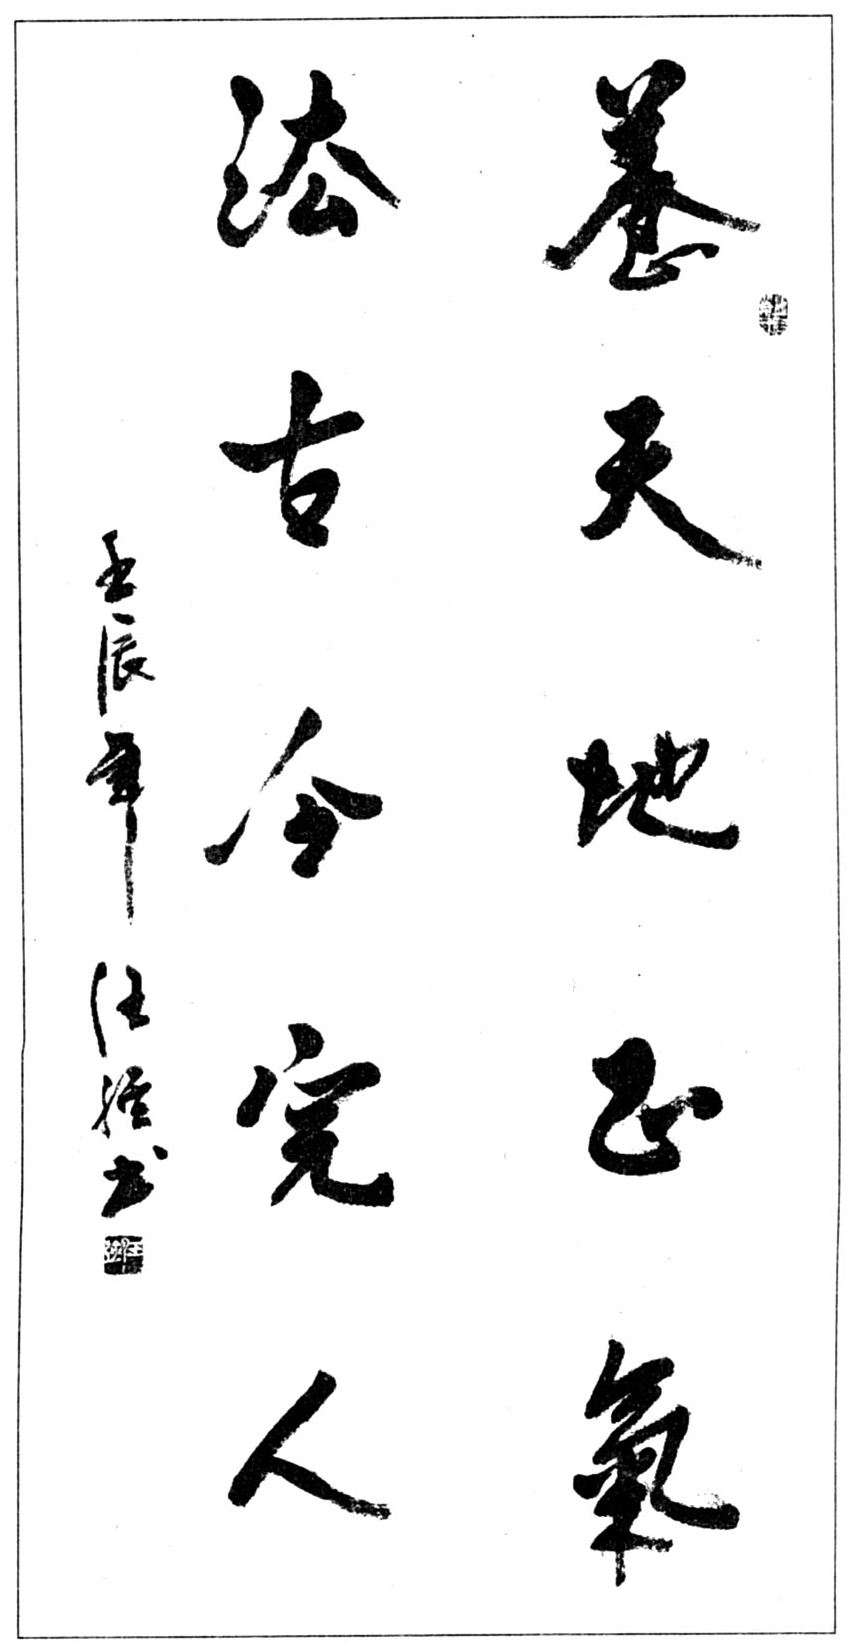 養天地正氣
法古今完人
壬辰年 汪雄书